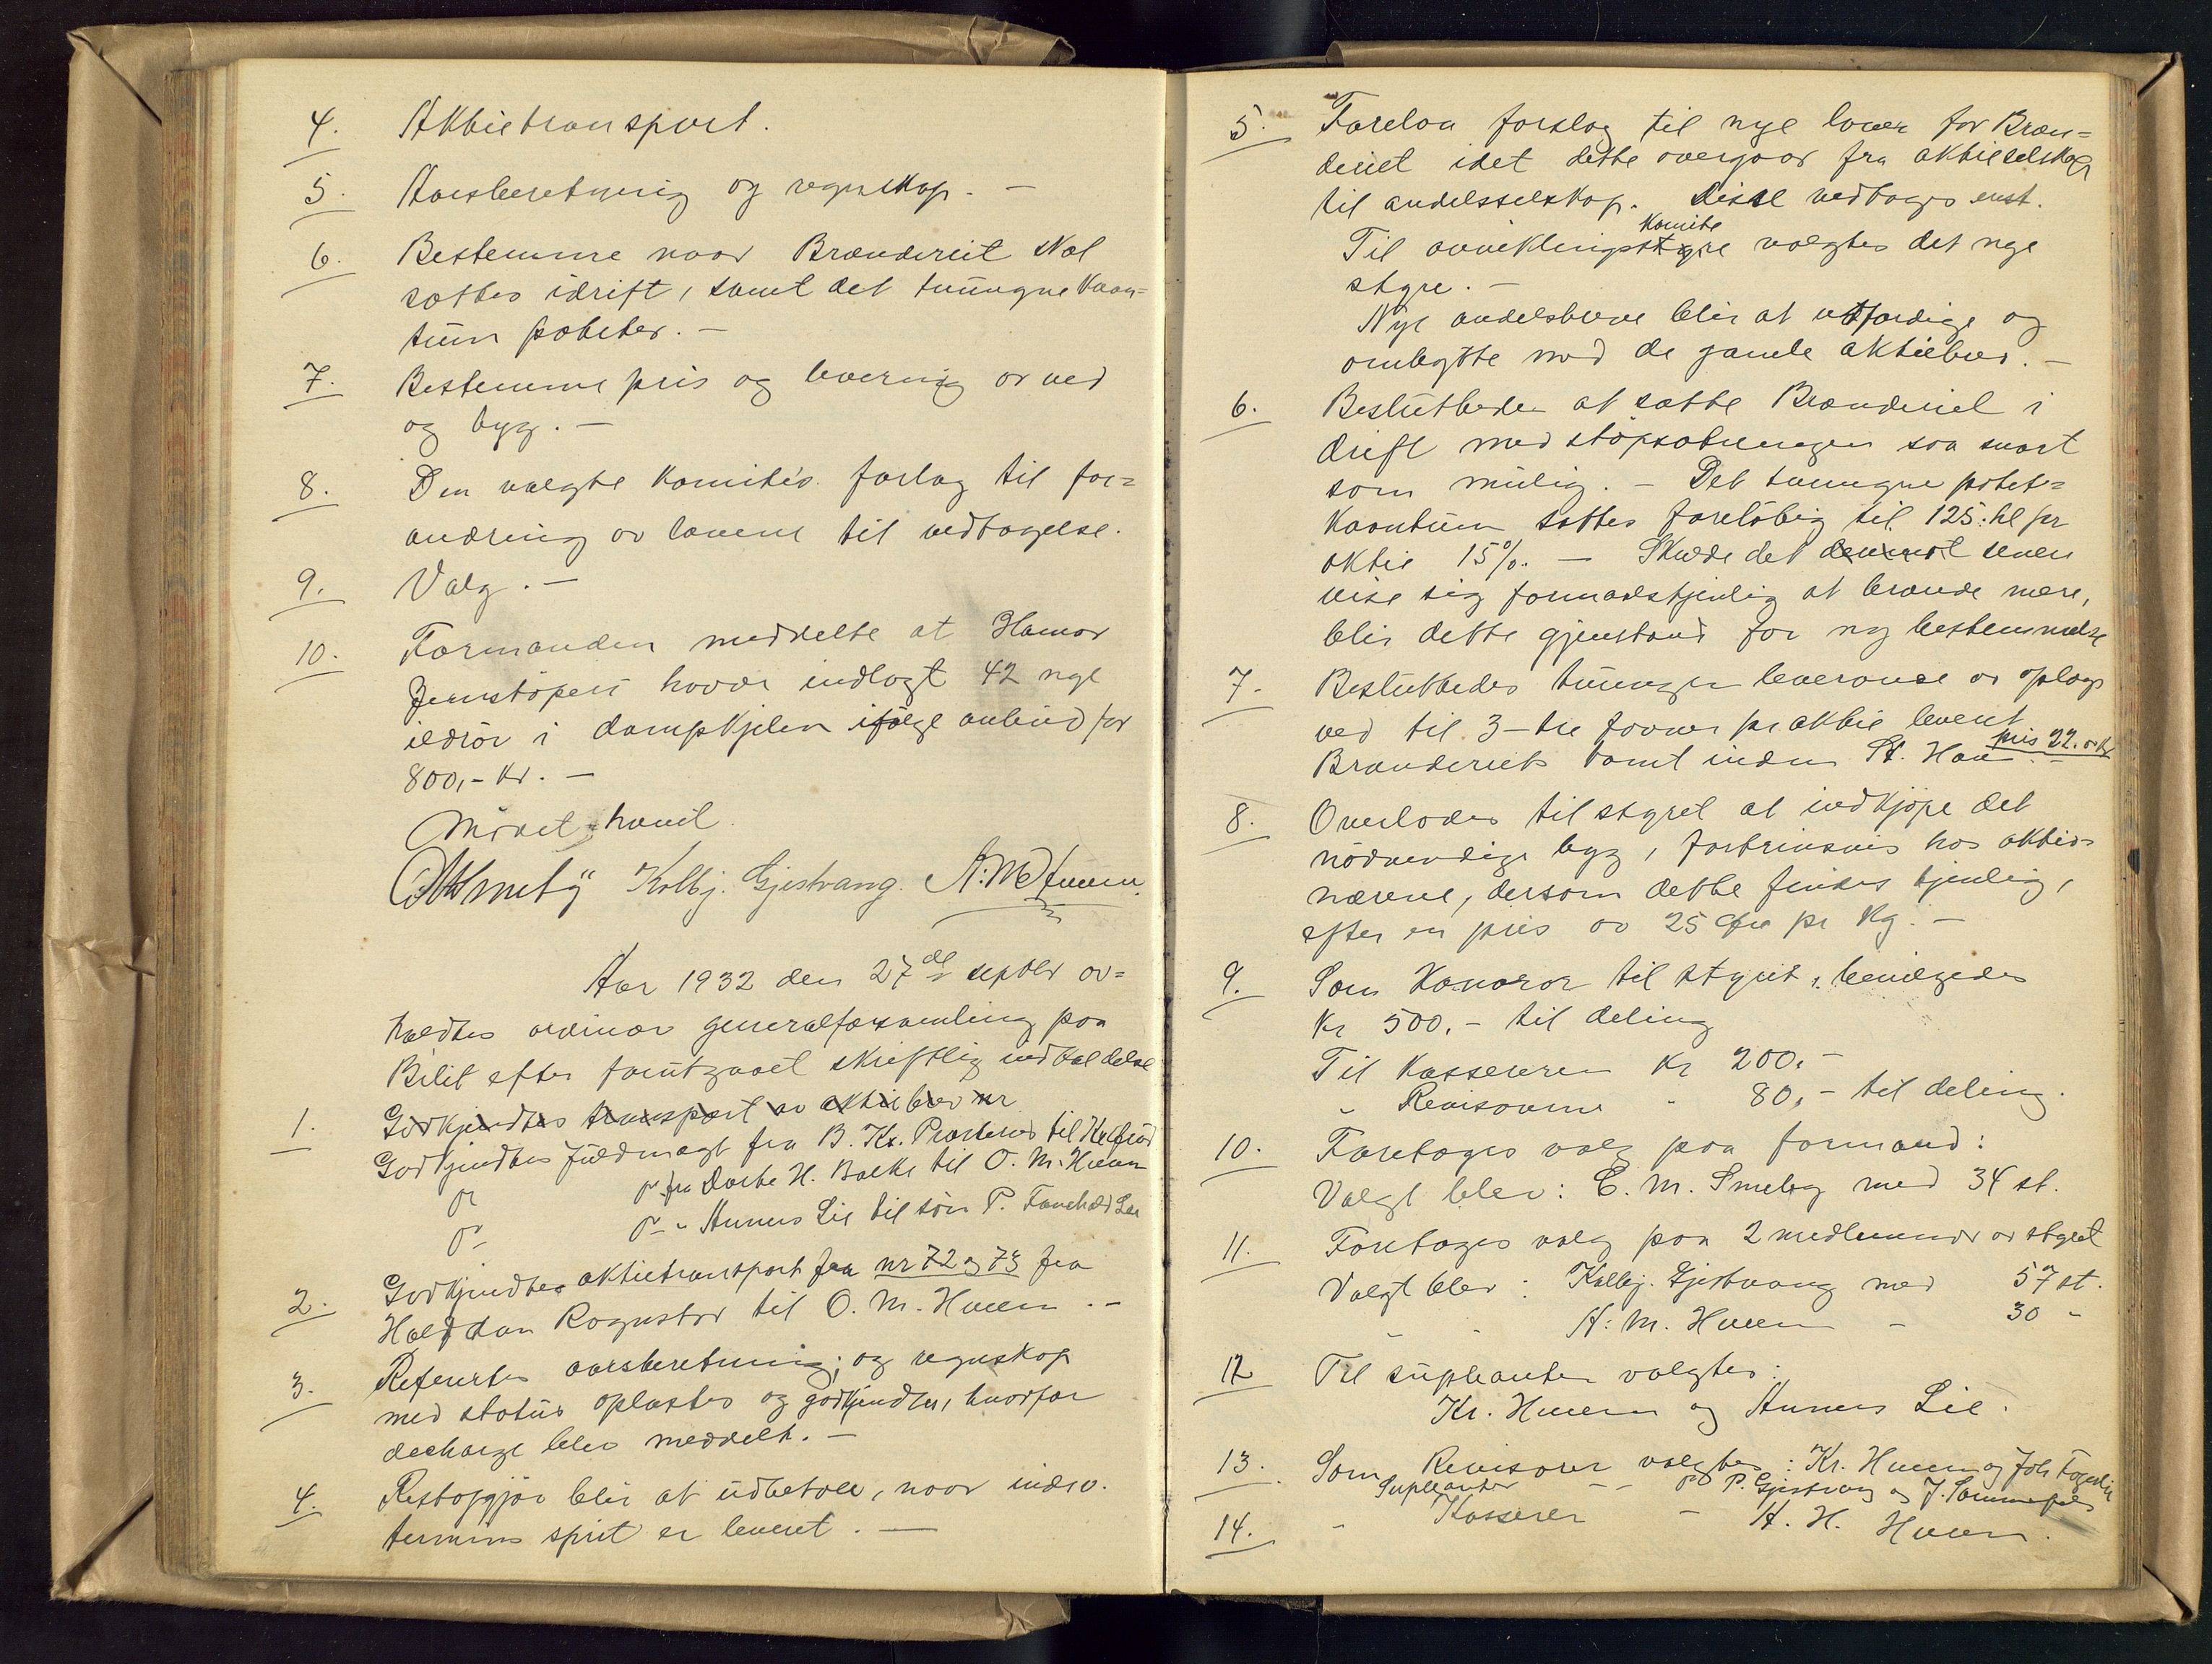 4. Aktietransport.
5. Aarsberetning og regnskap. —
6. Bestemme naar Brænderiet skal
sættes idrift, samt det tvungne kvan=
tum poteter. —
7. Bestemme pris og levering av ved
og byg. —
8. Den valgte komité's forlag til for=
andring av lovene til vedtagelse.
9. Valg. —
10. Formanden meddelte at Hamar
Jernstöperi havde indlagt 42 nye
ildrör i dampkjelen ifölge anbud for
800,- kr. —
Mödet hævet.
E M Smeby Kolbj. Gjestvang. A. M. Huuse
Aar 1932 den 27de septbr av=
holdtes ordinær generalforsamling paa
Bilit efter forutgaaet skriftlig indkaldelse
1. Godkjendtes transport av aktiebrev nr
Godkjendtes fuldmagt fra B. Kr. til
fra Dorte H. Balke til O. M. Huuse
" Annes Lie til sön P. Lie
2. Godkjendtes aktietransport fra nr 72 og 73 fra
Halfdan Rognstad til O. M. Huuse. —
3. Refertes aarsberetning; og regnskap
med status oplæstes og godkjendtes, hvorfor
decharge blev meddelt. —
4. Restopgjör blir at udbetale, naar indev.
termins sprit er leveret. —
5. Forelaa forslag til nye lover for Bræn=
deriet idet dette overgaar fra aktieselskap
til andelsselskap. Disse vedtoges enst.
Komite
Til avviklingsstyre valgtes det nye
styre. —
Nye andelsbreve blir at utfærdige og
ombytte med de gamle aktiebrev. —
6. Besluttedes at sætte Brænderiet i
drift med stöpsætningen saa snart
som mulig. — Det tvungne potet=
kvantum sættes foreløbig til 125 hl pr
aktie 15%. — Skulde det senere
vise sig formaalstjenlig at brænde mere,
blir dette gjenstand for ny bestemmelse
7. Besluttedes tvungen leveranse av oplags
ved til 3-tre favner pr aktie levert
pris 22.
Brænderiets tomt inden St. Han —
8. Overlodes til styret at indkjöpe det
nödvendige byg, fortrinsvis hos aktio=
nærene, dersom dette findes tjenlig,
efter en pris av 25 öre pr kg. —
9. Som Honorar til styret, bevilgedes
Kr 500.- til deling
Til Kassereren Kr 200.-
" Revisorene " 80,- til deling.
10. Foretoges valg paa formand:
Valgt blev: E. M. Smeby med 34 st.
11. Foretoges valg paa 2 medlemmer av styret
Valgt blev: Kolbj. Gjestvang med 57 st.
" " A. M. Huuse - 30 "
12 Til supleanter valgtes:
Kr. Huuse og Annes Lie.
13. Som Revisorer valgtes: Kr. Huuse og Joh
Supleanter - - P. Gjestvang og J.
14. " Kasserer - A. H. Huuse.